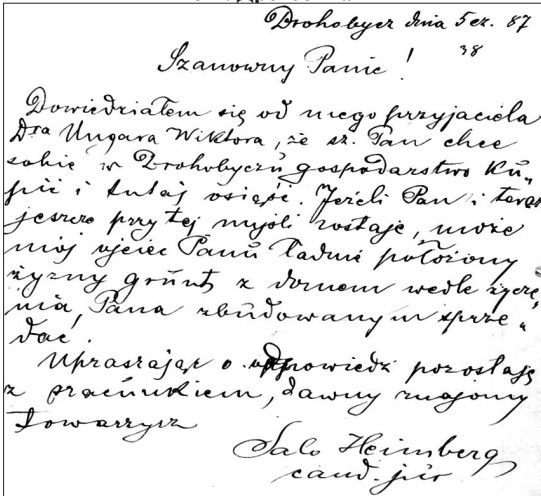 Drohobycz dnia 5 cz. 87
38
Szanowny Panie!
Dowiedziałem się od mego przyjaciela
Dra Ungara Wiktora, że sz. Pan chce
sobie w Drohobyczu gospodarstwo ku„
pić i tutaj osiąść. Jeżeli Pan i teraz
jeszcze przy tej myśli zostaje, może
mój ojciec Panu ładnie położony
żyzny grunt z domem wedle życze„
nia, Pana zbudowanym sprze„
dać.
Upraszając o odpowiedź pozostaję
z szacunkiem, dawny znajomy
towarzysz
Salo Heimberg
cand. jur